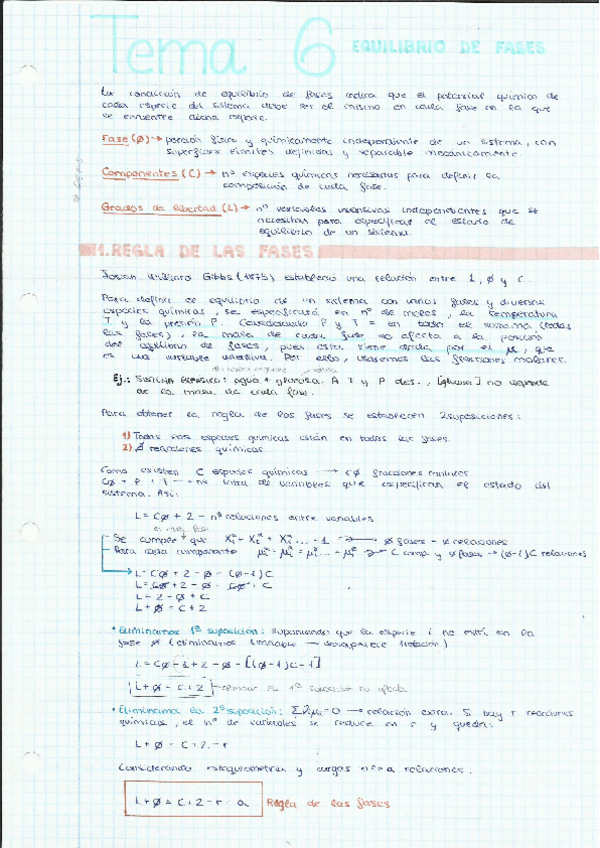 Tema 6 EQUILIBRIO DE FASES
La condición de equilibrio de fases indica que el potencial químico de
cada especie del sistema debe ser el mismo en cada fase en la que
se encuentre dicha especie.
Fase (Ø) → porción física y químicamente independiente de un sistema, con
superficies límites definidas y separable mecánicamente.
Componentes (C) → nº especies químicas necesarias para definir la
composición de cada fase.
Grados de libertad (L) → nº variables intensivas independientes que se
necesitan para especificar el estado de
equilibrio de un sistema.
1. REGLA DE LAS FASES
Josiah Willard Gibbs (1875) estableció una relación entre L, Ø y C.
Para definir el equilibrio de un sistema con varias fases y diversas
especies químicas, se especificará en nº de moles, la temperatura
T y la presión P. Considerando P y T = en todo el sistema (todas
las fases), la masa de cada fase no afecta a la posición
del equilibrio de fases, pues esta viene dada por el μ, que
es una variable intensiva. Por ello, usaremos las fracciones molares.
Ej.: Sistema bifásico: agua + glucosa. A T y P des., [glucosa] no depende
de la masa de cada fase.
Para obtener la regla de las fases se establecen 2 suposiciones:
1) Todas las especies químicas están en todas las fases.
2) ∄ reacciones químicas.
Como existen C especies químicas → CØ fracciones molares.
CØ + P + T → nº total de variables que especifican el estado del
sistema. Así:
L = CØ + 2 - nº relaciones entre variables
en cada fase
Se cumple que → Ø fases - Ø relaciones
Para cada componente → C comp. y Ø fases → (Ø-1)C relaciones
L = CØ + 2 - Ø - (Ø-1)C
L = CØ + 2 - Ø - CØ + C
L = 2 - Ø + C
L + Ø = C + 2
• Eliminamos 1ª suposición: suponiendo que la especie i no está en la
fase Ø (eliminamos 1 variable → desaparece 1 relación)
L = CØ - 1 + 2 - Ø - [(Ø-1)C - 1]
L + Ø = C + 2 → eliminar la 1ª suposición no afecta
• Eliminamos la 2ª suposición: Σνiμi = 0 → relación extra. Si hay r reacciones
químicas, el nº de variables se reduce en r y queda:
L + Ø = C + 2 - r
Considerando estequiometría y cargas a relaciones:
L + Ø = C + 2 - r - a Regla de las fases